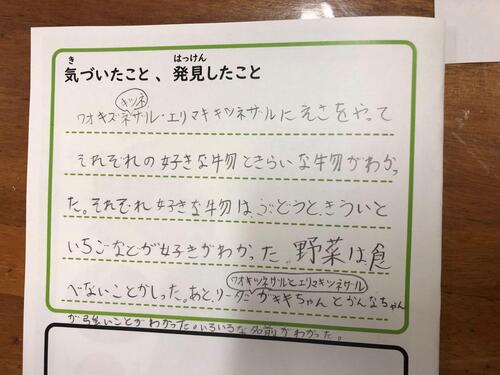 き はっけん
気づいたこと、発見したこと
キツネ
ワオキズネザル・エリマキキツネザルにえさをやって
それぞれの好きな物ときらいな物がわかっ
た。それぞれ好きな物は、ぶどうときういと
いちごなどが好きがわかった。野菜は食
ワオキツネザルとエリマキキツネザル
べないことがしった。あと、リーダーがキキちゃんとかんなちゃん
が強いことがわかった。いろいろな名前がわかった。